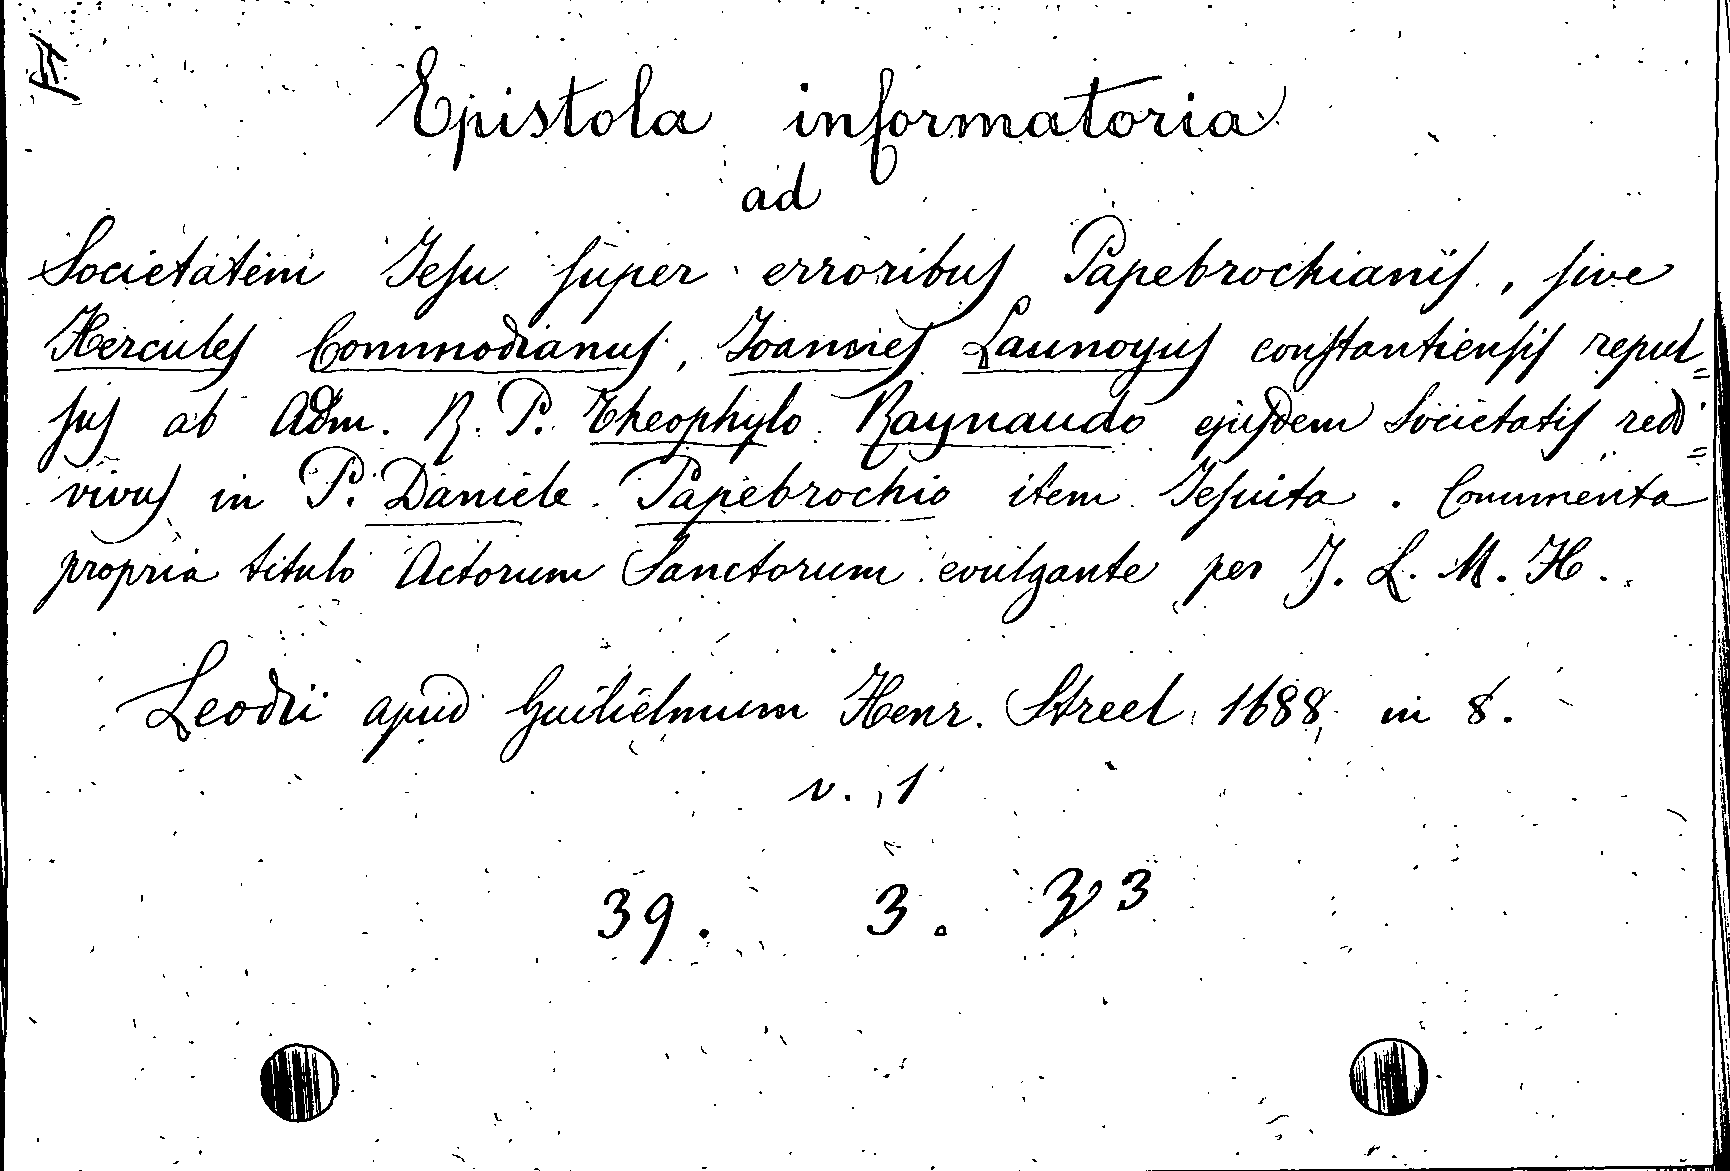 Epistola informatoria
ad
Societatem Jesu super erroribus Papebrochianis, sive
Hercules Commodianus, Joannes Launoyus constantiensis repul=
sus ab Adm. R. P. Theophylo Raynaudo ejusdem Societatis redi=
vivus in P. Daniele Papebrochio item Jesuita. Commenta
propria titulo Actorum Sanctorum evulgante per J. L. M. H.
Leodii apud Guilielmum Henr. Streel 1688, in 8.
v. 1
39. 3. 33